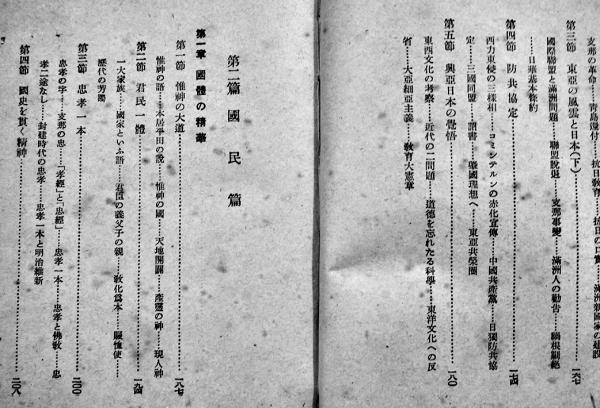 支那の革命……青島還付……抗日教育……抗日の口實……滿洲新國家の建設
第三節 東亞の風雲と日本(下)……一六七
國際聯盟と滿洲問題……聯盟脫退……支那事變……滿洲人の勸告……禍根剿絕
……日華基本條約
第四節 防共協定……一七四
西力東侵の三樣相……コミンテルンの赤化宣傳……中國共產黨……日獨防共協
定……三國同盟……詔書……肇國理想へ……東亞共榮圈
第五節 興亞日本の覺悟……一八〇
東西文化の考察……近代の二問題……道德を忘れたる科學……東洋文化への反
省……大亞細亞主義……敎育大憲章
第二篇 國民篇
第一章 國體の精華
第一節 惟神の大道……一八七
惟神の語……本居平田の說……惟神の國……天地開闢……產靈の神……現人神
第二節 君民一體……一九四
一大家族……國家といふ語……君臣の義父子の親……敎化爲本……賑恤使……
歷代の芳躅
第三節 忠孝一本……二〇〇
忠孝の字……支那の忠……「孝經」と「忠經」……忠孝一本……忠孝と佛敎……忠
孝二途なし……封建時代の忠孝……忠孝一本と明治維新
第四節 國史を貫く精神……二〇八